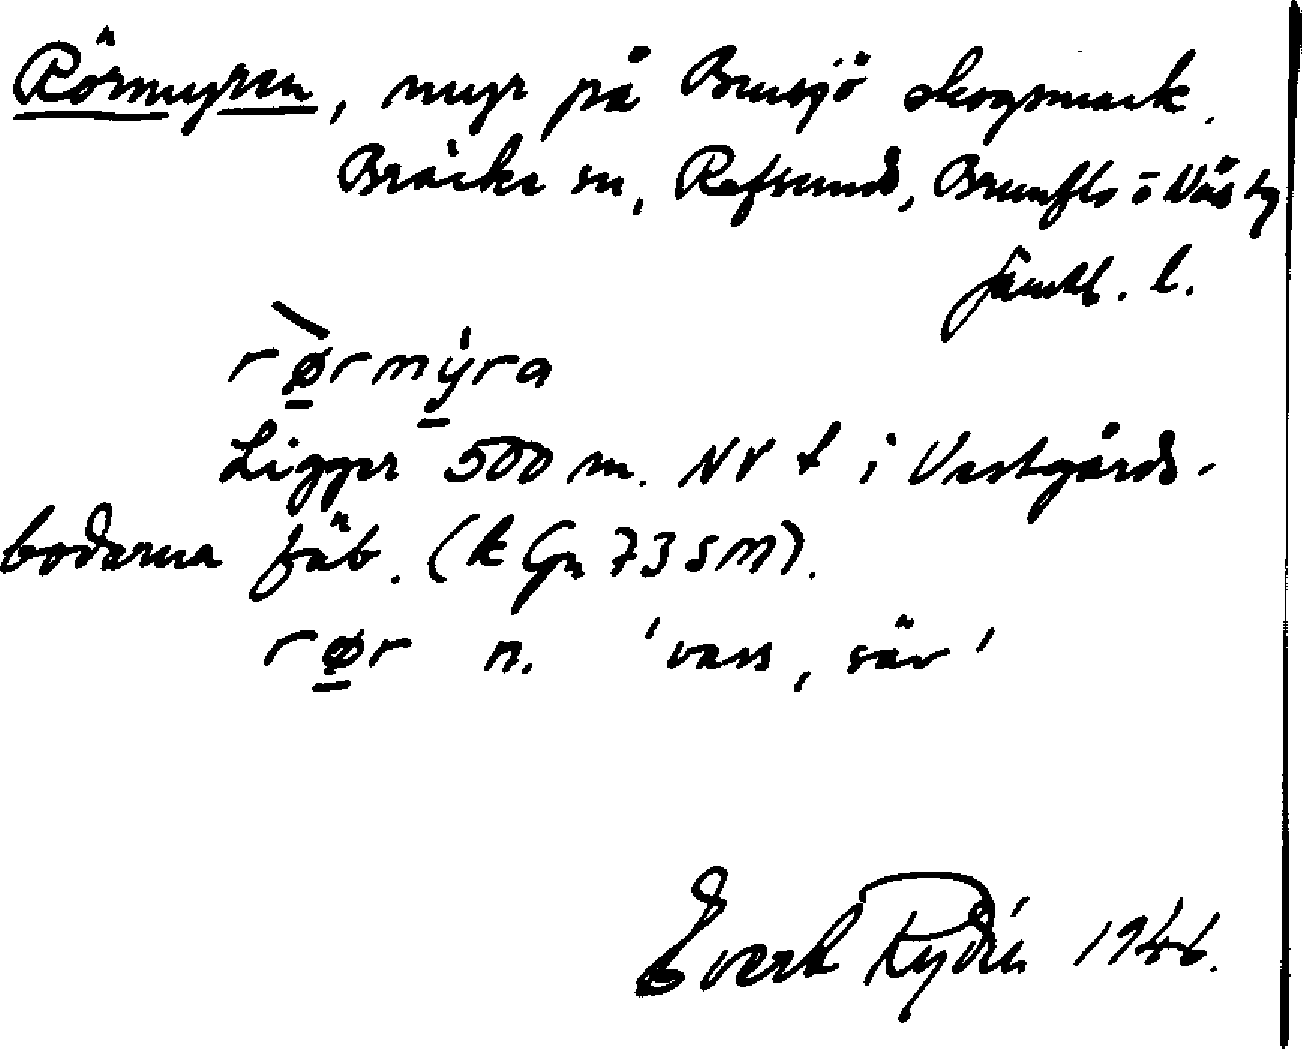 Rörmyren, myr på Bensjö skogsmark.
Bräcke sn, Refsunds, Brunflo o Näs tg
Jämtl. l.
rørmýra
Ligger 500 m. NV t i Västgårds-
bodarna fäb. (k Gn 73 SM).
rør n. 'vass, säv'
Evert Rydén 1946.